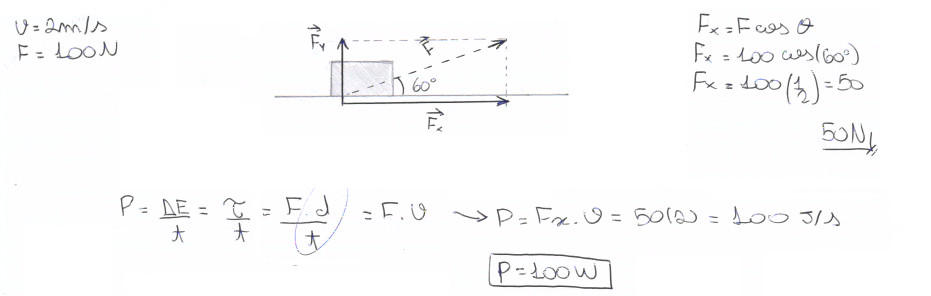 v = 2m/s
F = 100N
F⃗y
F⃗
60°
F⃗x
Fx = F cos θ
Fx = 100 cos(60°)
Fx = 100 (1/2) = 50
50N
P = ΔE/t = τ/t = F.d/t = F.v → P = Fx.v = 50(2) = 100 J/s
P = 100W